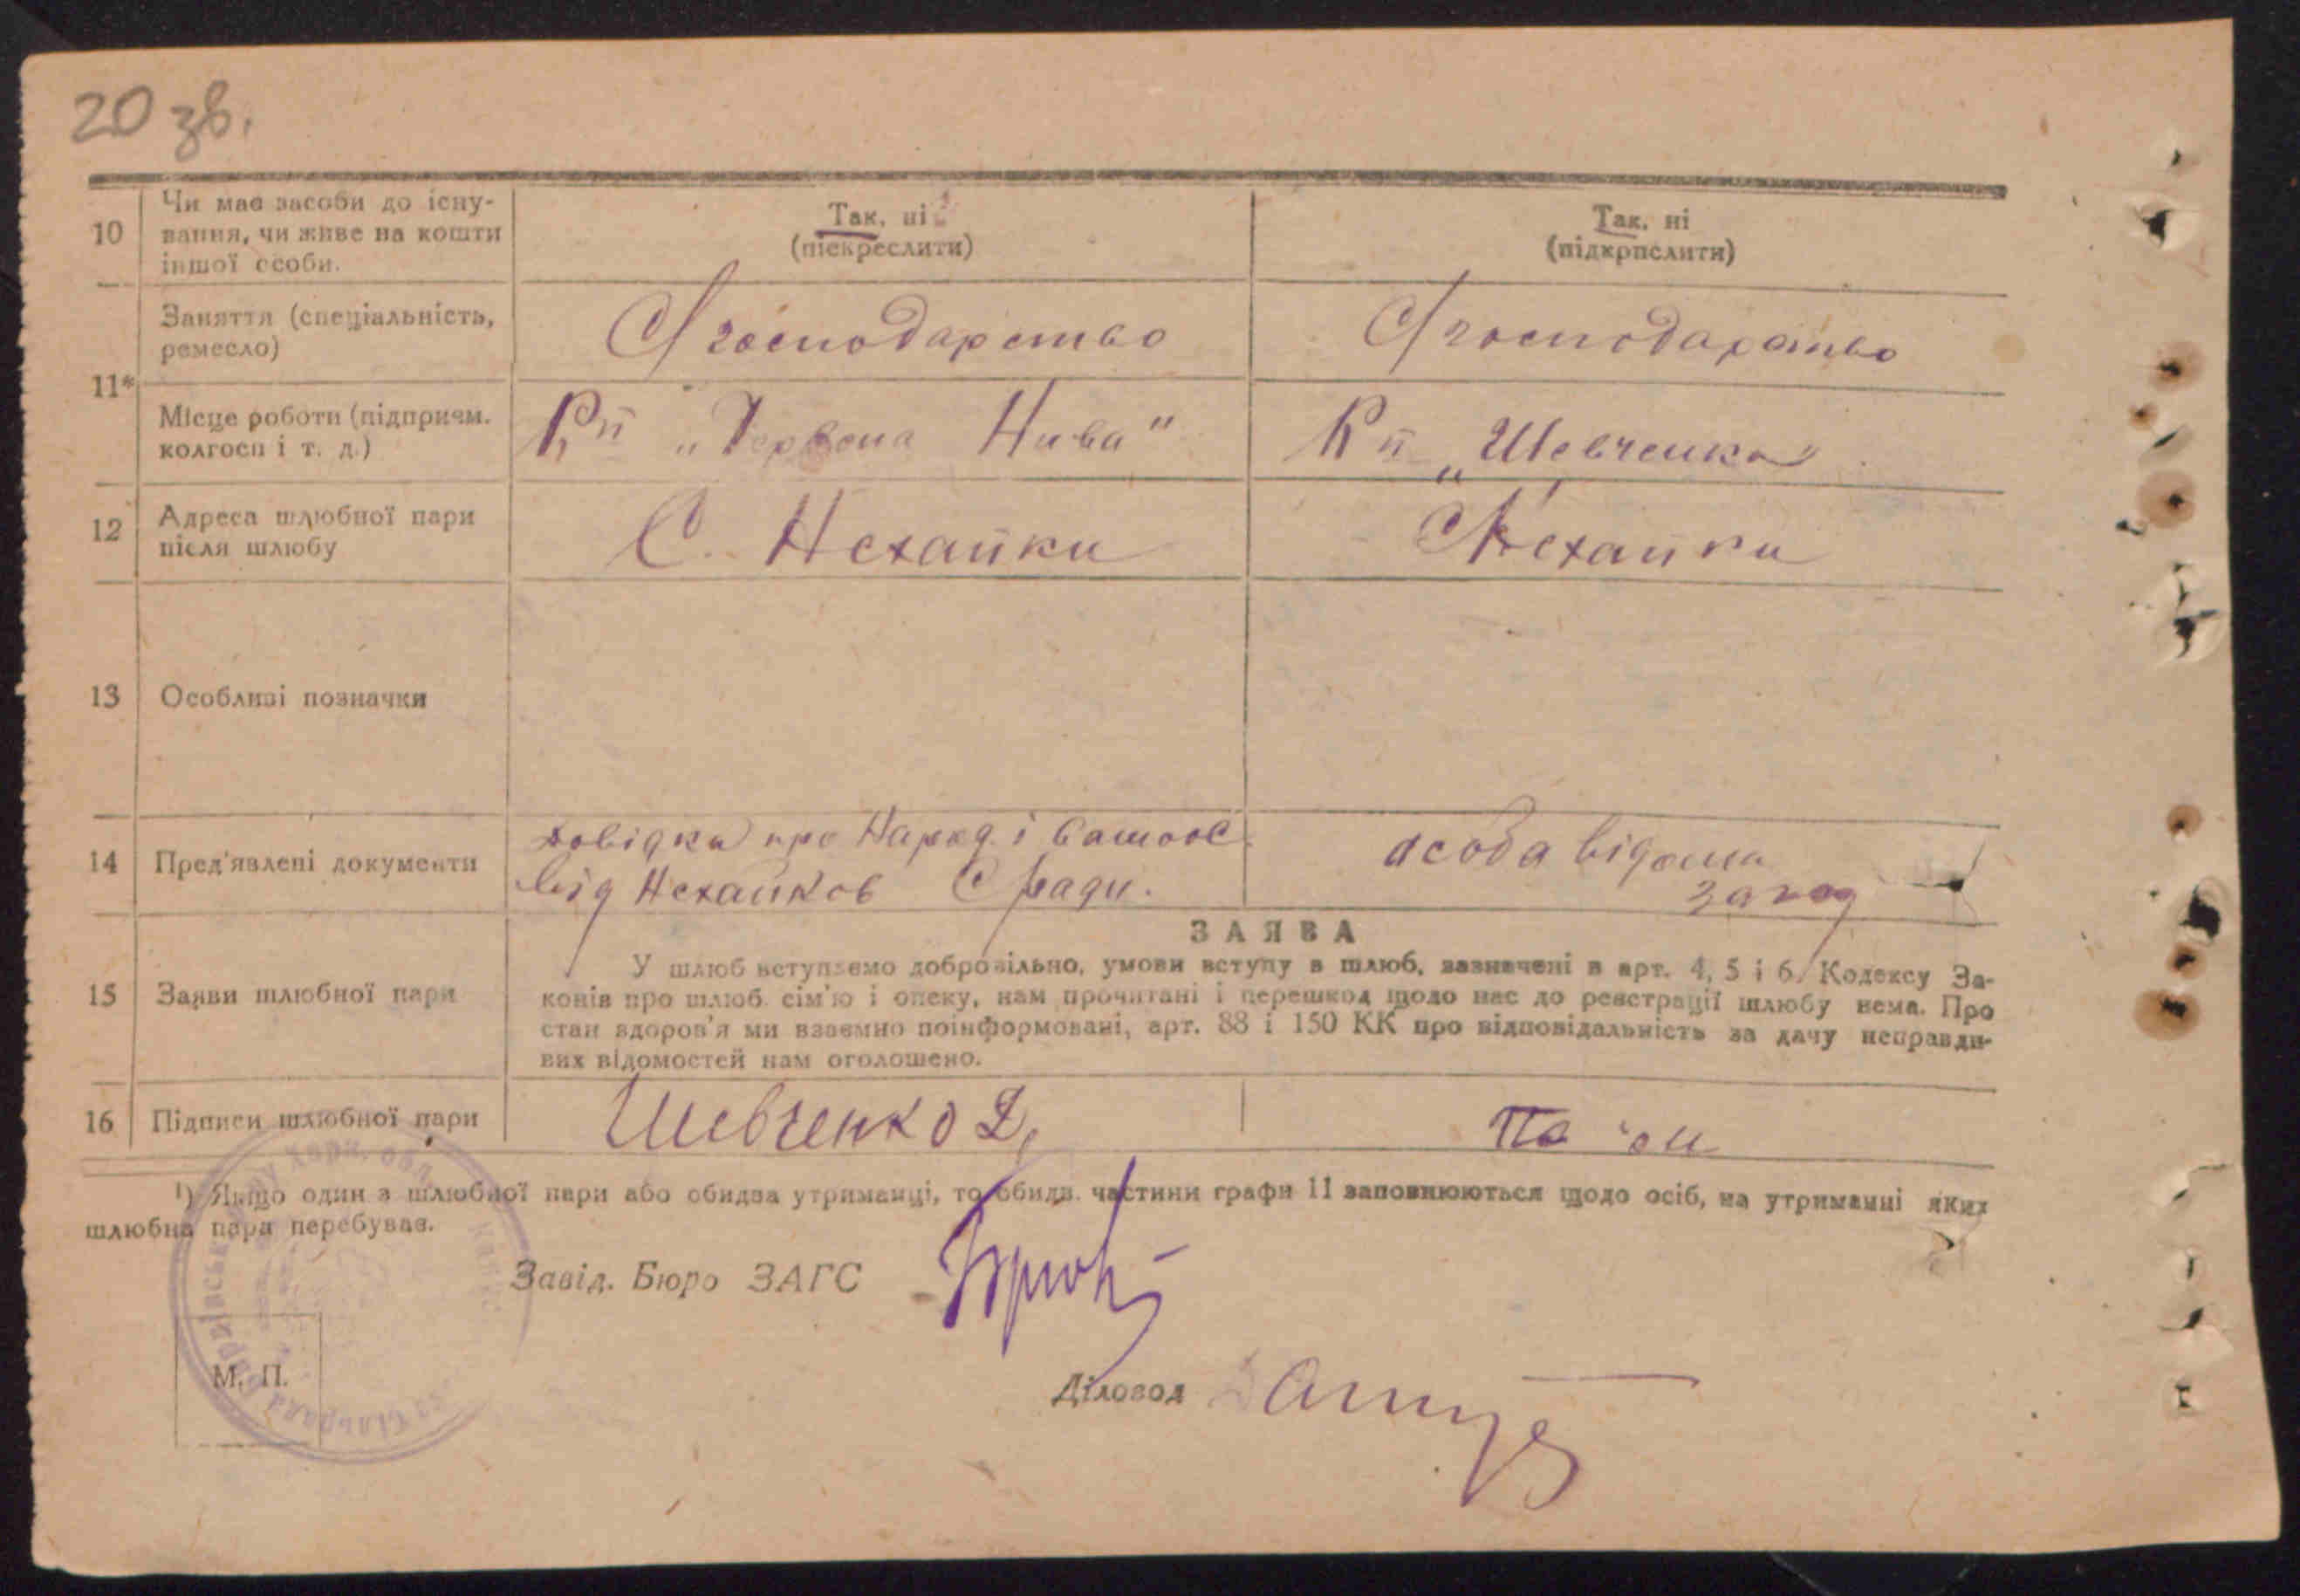 20 зв.
10 Чи має засоби до існу-
вання, чи живе на кошти
іншої особи.
Так, ні
(пієкреслити)
Так, ні
(підкрпслити)
11* Заняття (спеціальність,
ремесло)
С/господарство
С/господарство
Місце роботи (підприєм.
колгосп і т. д.)
Кп „Червона Нива"
Кп „Шевченка"
12 Адреса шлюбної пари
після шлюбу
С. Нехайки
С Нехайки
13 Особливі позначки
14 Пред'явлені документи
довідка про Народ. і
від Нехайков С/ради.
особа відома
15 Заяви шлюбної пари
ЗАЯВА
У шлюб вступаємо добровільно, умови вступу в шлюб, зазначені в арт. 4, 5 і 6 Кодексу За-
конів про шлюб. сім'ю і опеку, нам прочитані і перешкод щодо нас до реєстрації шлюбу нема. Про
стан здоров'я ми взаємно поінформовані, арт. 88 і 150 КК про відповідальність за дачу неправди-
вих відомостей нам оголошено.
16 Підписи шлюбної пари
Шевченко Д.
¹) Якщо один з шлюбної пари або обидва утриманці, то обидв. частини графи 11 заповнюються щодо осіб, на утриманні яких
шлюбна пара перебуває.
Завід. Бюро ЗАГС
Діловод
М. П.